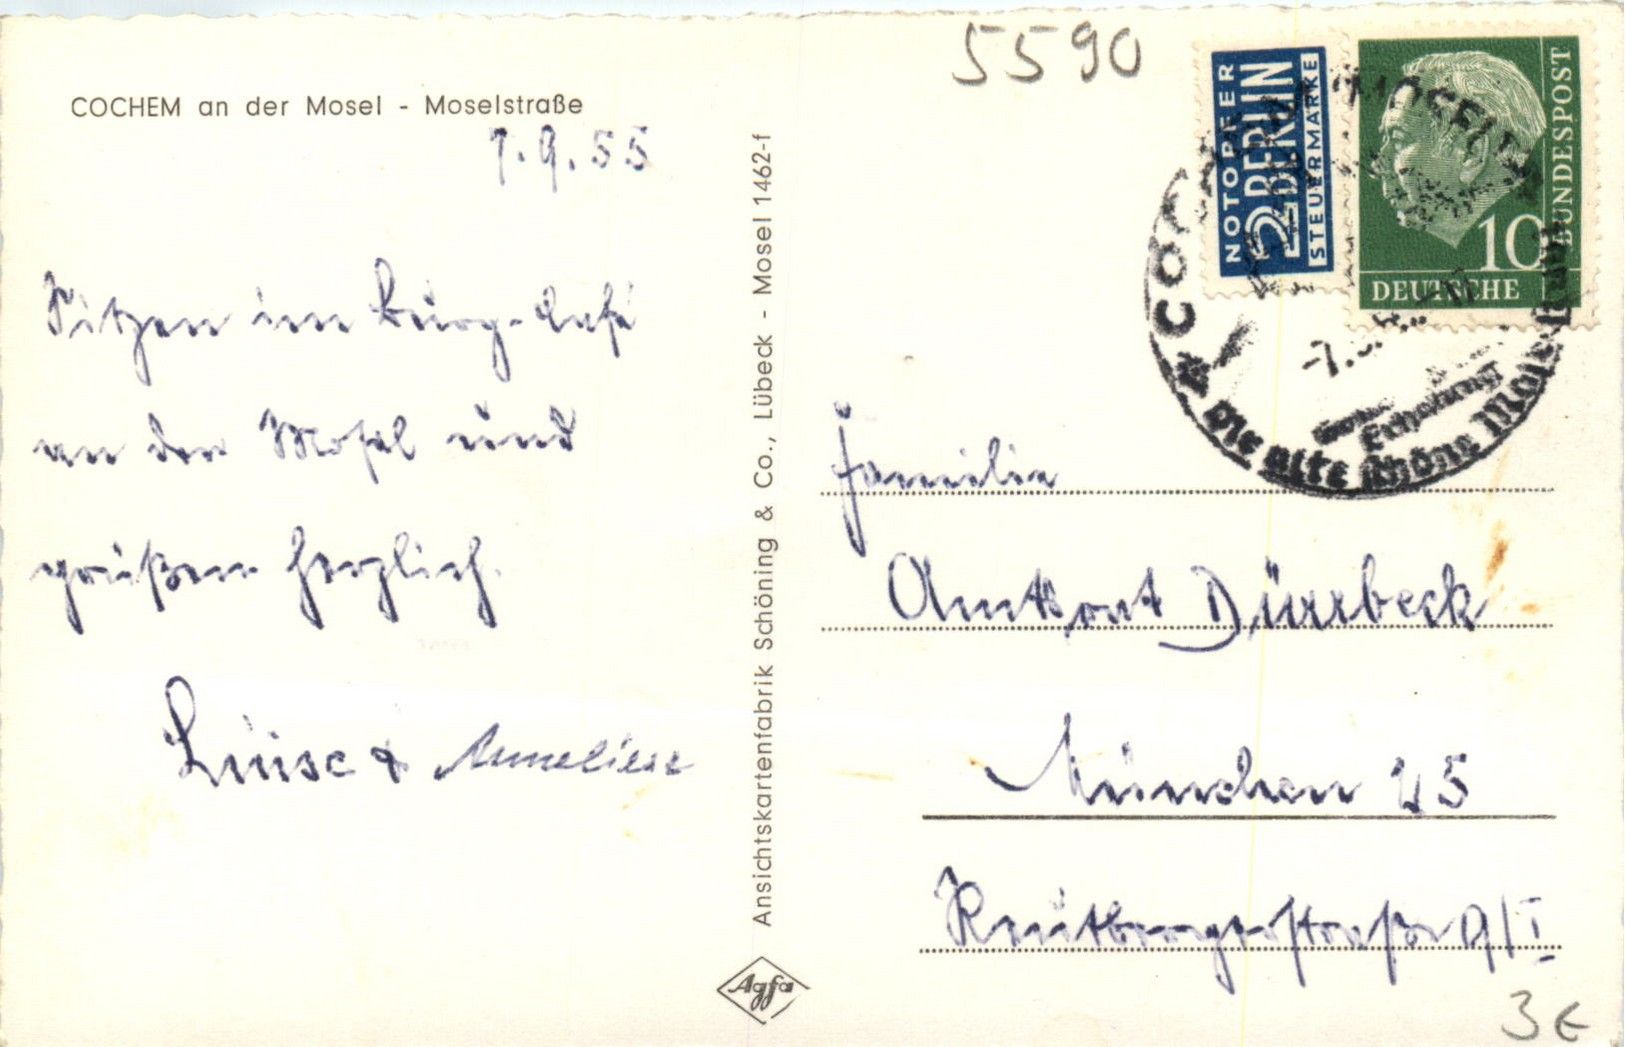 COCHEM an der Mosel - Moselstraße
7.9.55
Sitzen im Burg-Café
an der Mosel und
grüßen herzlich.
Luise & Anneliese
Ansichtskartenfabrik Schöning & Co., Lübeck - Mosel 1462-f
Agfa
5590
NOTOPFER
2 BERLIN
STEUERMARKE
DEUTSCHE
BUNDESPOST
10
COCHEM (MOSEL)
Die alte schöne Moselstadt
Erholung
Familie
Dürrbeck
München 25
Reutbergerstraße 9/I
3€